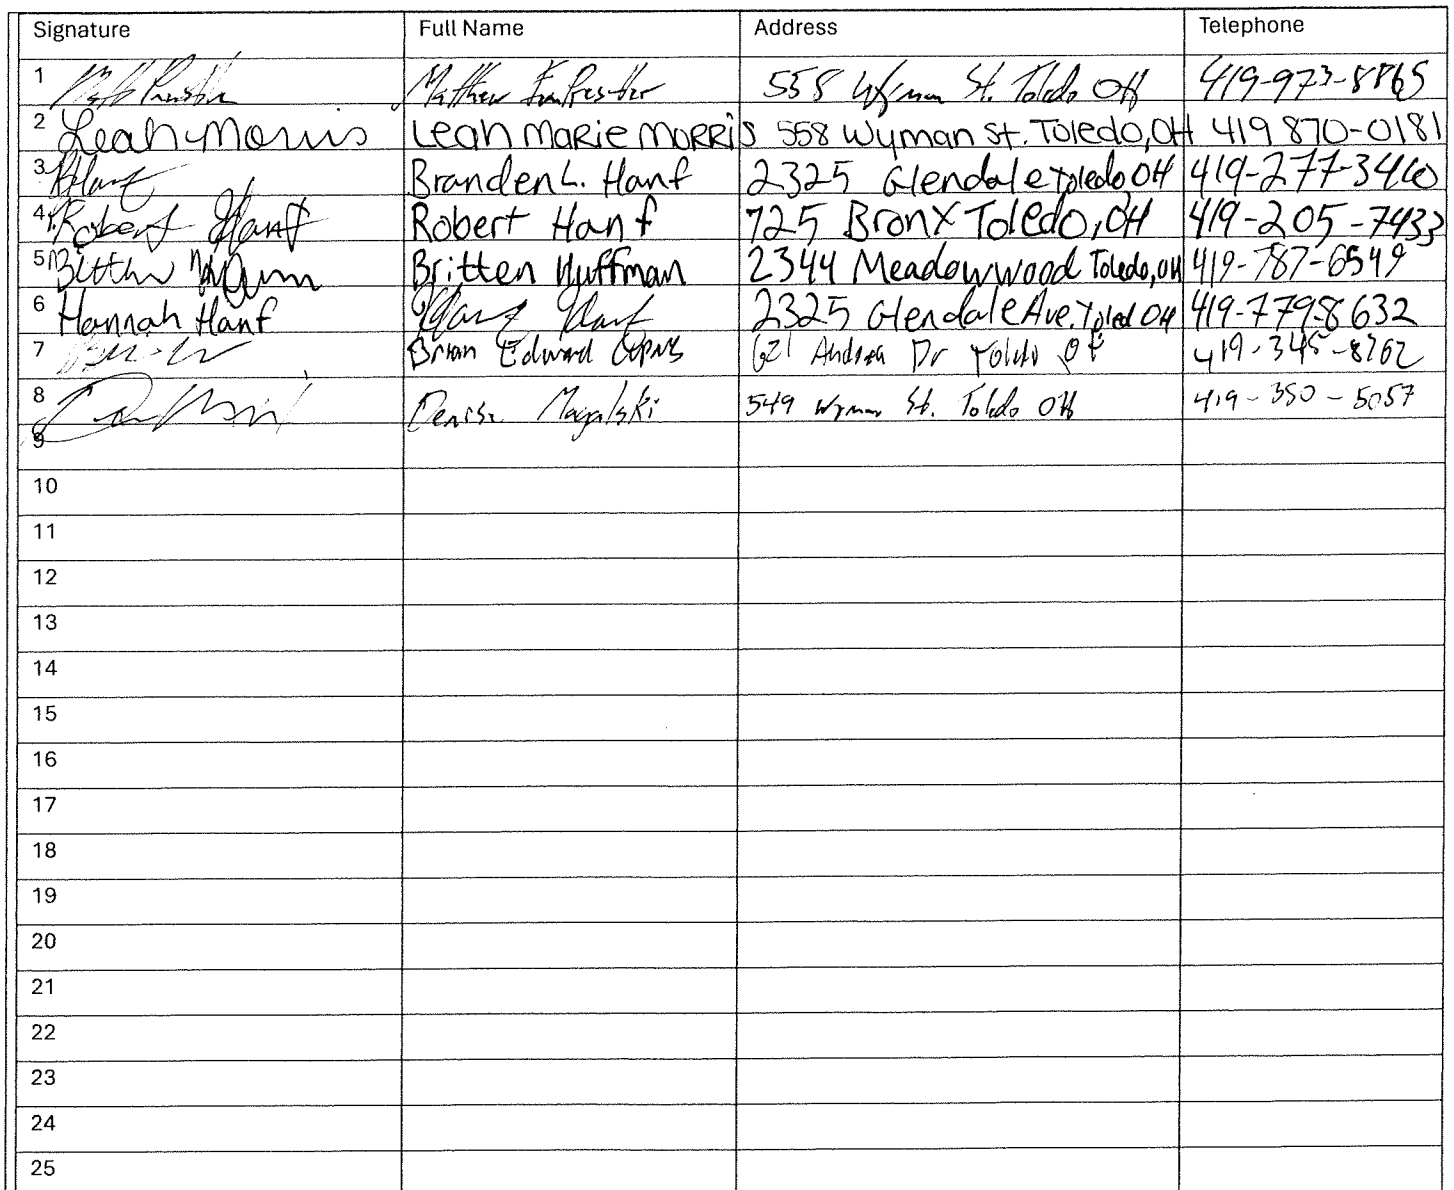 Signature Full Name Address Telephone
1 Matt 558 Wyman St. Toledo OH 419-973-8865
2 Leah Morris LEAH MARIE MORRIS 558 Wyman St. Toledo, OH 419 870-0181
3 Hanf Branden L. Hanf 2325 Glendale Toledo, OH 419-277-3460
4. Robert Hanf Robert Hanf 725 Bronx Toledo, OH 419-205-7433
5 Britten Huffman 2344 Meadowwood Toledo, OH 419-787-6549
6 Hannah Hanf Hanf 2325 Glendale Ave. Toled OH 419-779-8632
7 Brian Edward 621 Andrea Dr Toledo OH 419-345-8762
8 Denise 549 Wyman St. Toledo OH 419-350-5057
9
10
11
12
13
14
15
16
17
18
19
20
21
22
23
24
25